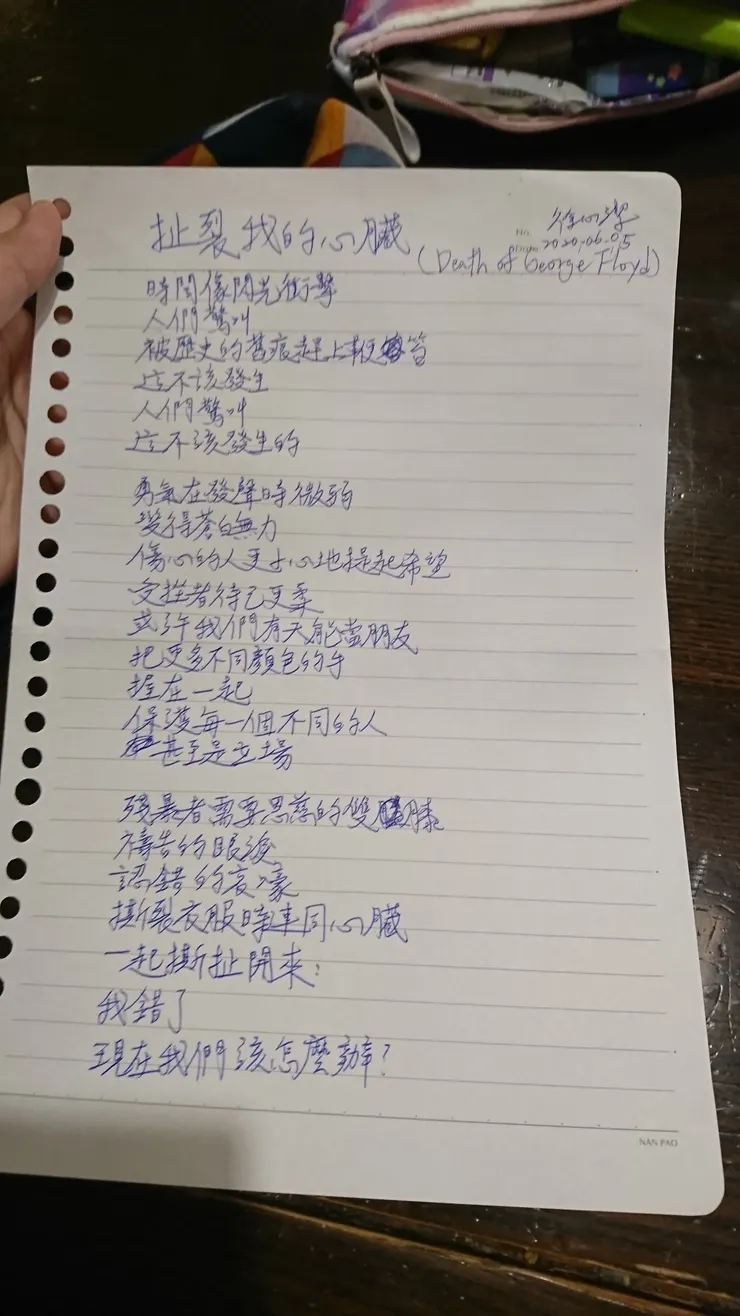 扯裂我的心臟
徐心潔
No.
Date
2020.06.05
(Death of George Floyd)
時間像閃光衝擊
人們驚叫
被歷史的舊痕趕上鞭笞
這不該發生
人們驚叫
這不該發生的
勇氣在發聲時微弱
變得蒼白無力
傷心的人更小心地提起希望
受挫者待己更柔
或許我們有天能當朋友
把更多不同顏色的手
握在一起
保護每一個不同的人
甚至是立場
殘暴者需要思慈的雙膝
禱告的眼淚
認錯的哀嚎
撕裂衣服時連同心臟
一起撕扯開來:
我錯了
現在我們該怎麼辦?
NAN PAO